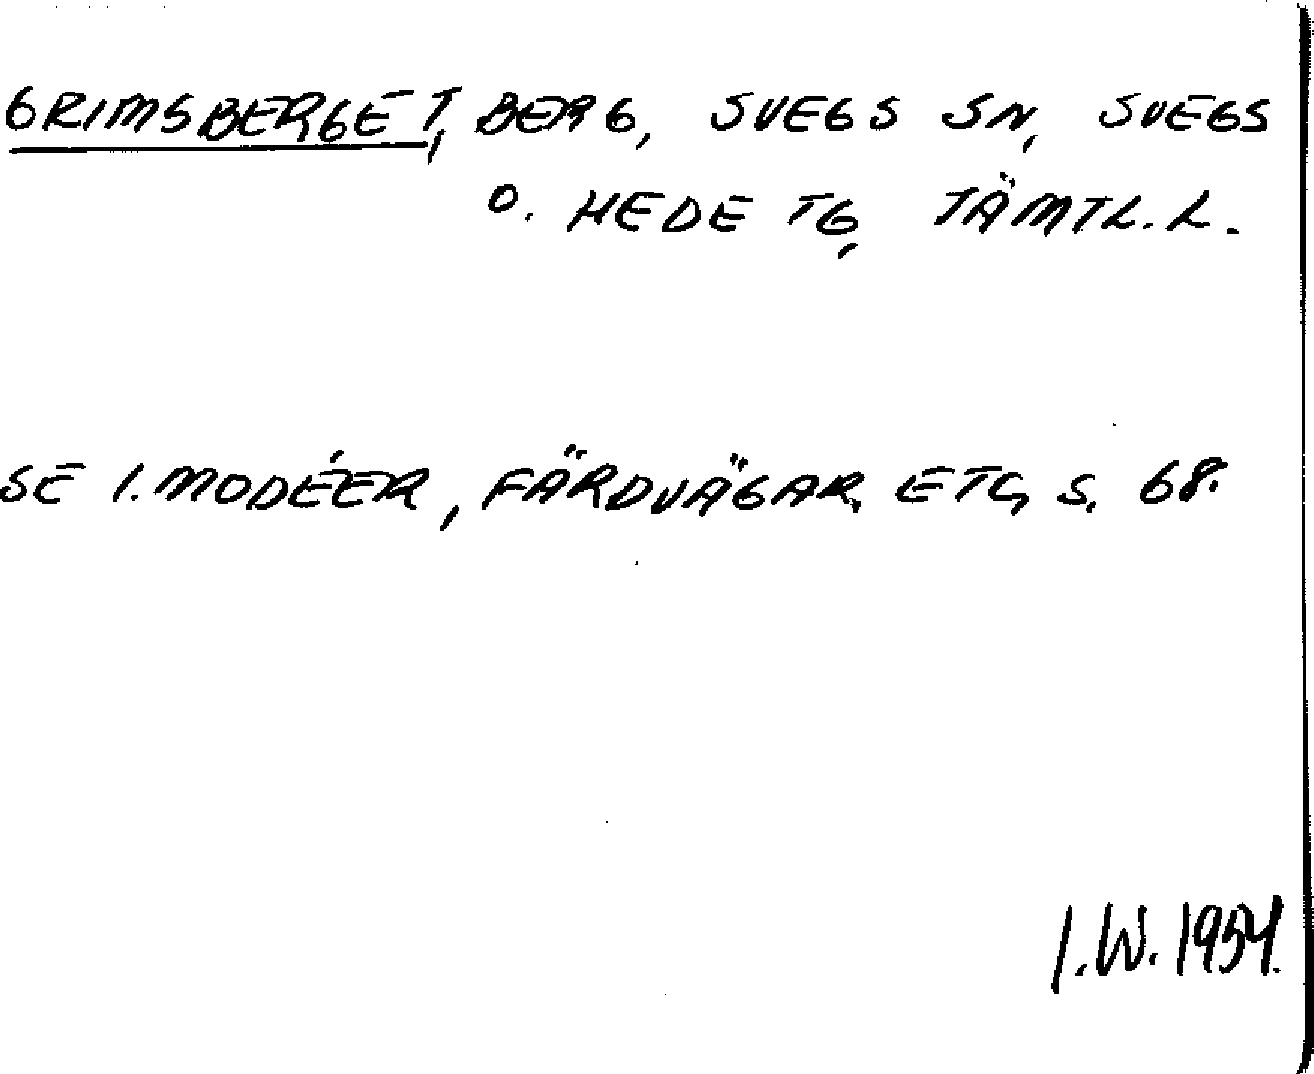 GRIMSBERGET, BERG, SVEGS SN, SVEGS
O. HEDE TG, JÄMTL. L.
SE I. MODÉER, FÄRDVÄGAR ETC, S. 68.
I.W. 1954.